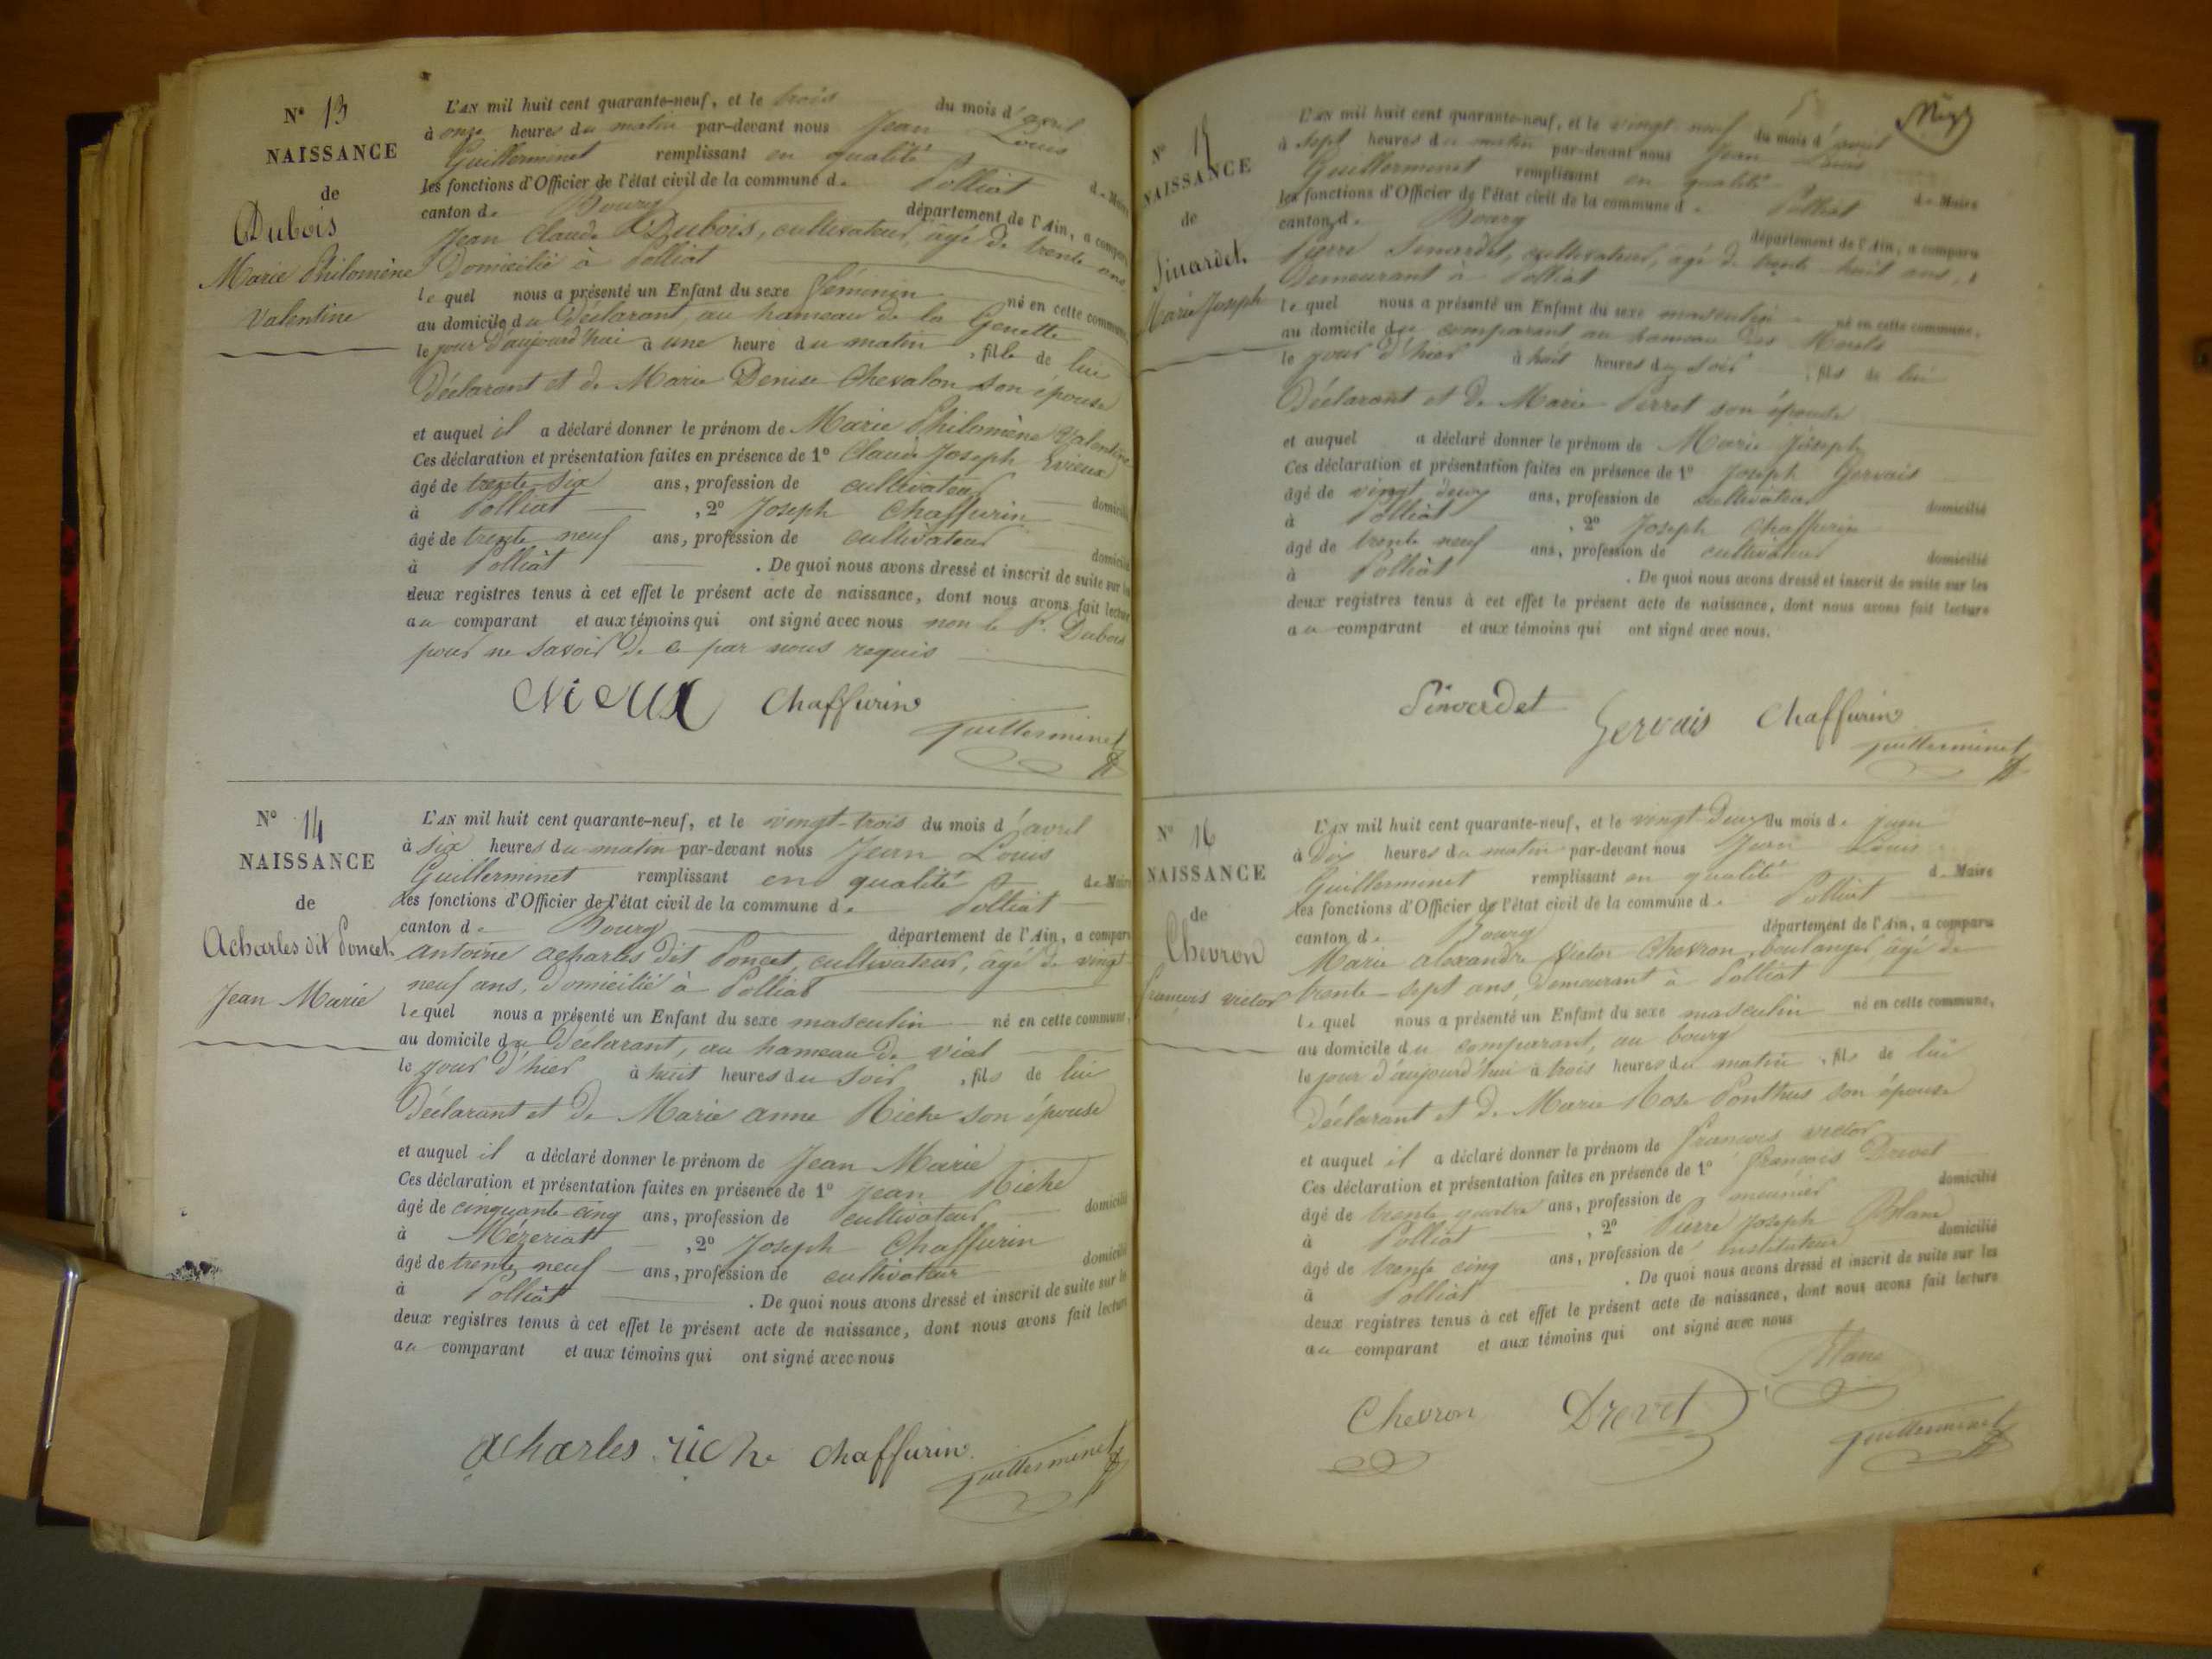 N° 13
NAISSANCE
de
Dubois
Marie Philomène
Valentine
L'AN mil huit cent quarante-neuf, et le trois du mois d'avril
à onze heures du matin par-devant nous Jean Louis
Guillerminet remplissant en qualité de Maire
les fonctions d'Officier de l'état civil de la commune de Polliat
canton de Bourg département de l'Ain, a comparu
Jean Claude Dubois, cultivateur, âgé de trente ans,
Domicilié à Polliat
lequel nous a présenté un Enfant du sexe féminin né en cette commune,
au domicile du Déclarant, au hameau de la Genette
le jour d'aujourd'hui à une heure du matin, fille de lui
Déclarant et de Marie Denise Chevalon son épouse
et auquel il a déclaré donner le prénom de Marie Philomène Valentine
Ces déclaration et présentation faites en présence de 1° Claude Joseph
âgé de trente-six ans, profession de cultivateur domicilié
à Polliat, 2° Joseph Chaffurin
âgé de trente neuf ans, profession de cultivateur domicilié
à Polliat. De quoi nous avons dressé et inscrit de suite sur les
deux registres tenus à cet effet le présent acte de naissance, dont nous avons fait lecture
au comparant et aux témoins qui ont signé avec nous non le Sr. Dubois
pour ne savoir de ce par nous requis
Chaffurin
Guillerminet
N° 14
NAISSANCE
de
Acharles dit Poncet
Jean Marie
L'AN mil huit cent quarante-neuf, et le vingt-trois du mois d'avril
à six heures du matin par-devant nous Jean Louis
Guillerminet remplissant en qualité de Maire
les fonctions d'Officier de l'état civil de la commune de Polliat
canton de Bourg département de l'Ain, a comparu
Antoine Acharles dit Poncet, cultivateur, âgé de vingt
neuf ans, domicilié à Polliat
lequel nous a présenté un Enfant du sexe masculin né en cette commune,
au domicile du Déclarant, au hameau de Vial
le jour d'hier à huit heures du soir, fils de lui
Déclarant et de Marie Anne Riche son épouse
et auquel il a déclaré donner le prénom de Jean Marie
Ces déclaration et présentation faites en présence de 1° Jean Riche
âgé de cinquante cinq ans, profession de cultivateur domicilié
à Mézériat, 2° Joseph Chaffurin
âgé de trente neuf ans, profession de cultivateur domicilié
à Polliat. De quoi nous avons dressé et inscrit de suite sur les
deux registres tenus à cet effet le présent acte de naissance, dont nous avons fait lecture
au comparant et aux témoins qui ont signé avec nous
Acharles riche Chaffurin
Guillerminet
N° 15
NAISSANCE
de
Sinardet
Marie Joseph
L'AN mil huit cent quarante-neuf, et le vingt neuf du mois d'avril
à sept heures du matin par-devant nous Jean Louis
Guillerminet remplissant en qualité de Maire
les fonctions d'Officier de l'état civil de la commune de Polliat
canton de Bourg département de l'Ain, a comparu
Pierre Sinardet, cultivateur, âgé de trente huit ans,
Demeurant à Polliat
lequel nous a présenté un Enfant du sexe masculin né en cette commune,
au domicile du comparant au hameau des
le jour d'hier à huit heures du soir, fils de lui
Déclarant et de Marie Perret son épouse
et auquel a déclaré donner le prénom de Marie Joseph
Ces déclaration et présentation faites en présence de 1° Joseph Gervais
âgé de vingt deux ans, profession de cultivateur domicilié
à Polliat, 2° Joseph Chaffurin
âgé de trente neuf ans, profession de cultivateur domicilié
à Polliat. De quoi nous avons dressé et inscrit de suite sur les
deux registres tenus à cet effet le présent acte de naissance, dont nous avons fait lecture
au comparant et aux témoins qui ont signé avec nous.
Sinardet Gervais Chaffurin
Guillerminet
N° 16
NAISSANCE
de
Chevron
François Victor
L'AN mil huit cent quarante-neuf, et le vingt deux du mois de juin
à Dix heures du matin par-devant nous Jean Louis
Guillerminet remplissant en qualité de Maire
les fonctions d'Officier de l'état civil de la commune de Polliat
canton de Bourg département de l'Ain, a comparu
Marie Alexandre Victor Chevron, boulanger âgé de
trente-sept ans, Demeurant à Polliat
lequel nous a présenté un Enfant du sexe masculin né en cette commune,
au domicile du comparant, au bourg
le jour d'aujourd'hui à trois heures du matin, fils de lui
Déclarant et de Marie Rose Ponthus son épouse
et auquel il a déclaré donner le prénom de François Victor
Ces déclaration et présentation faites en présence de 1° François Drevet
âgé de trente quatre ans, profession de meunier domicilié
à Polliat, 2° Pierre Joseph Blanc
âgé de trente cinq ans, profession de instituteur domicilié
à Polliat. De quoi nous avons dressé et inscrit de suite sur les
deux registres tenus à cet effet le présent acte de naissance, dont nous avons fait lecture
au comparant et aux témoins qui ont signé avec nous
Blanc
Chevron Drevet
Guillerminet